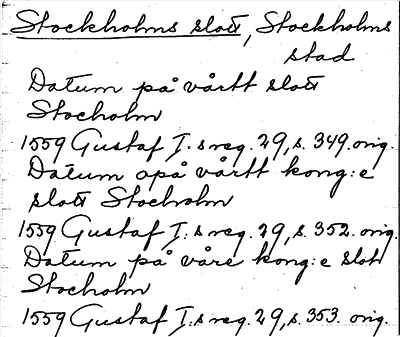 Stockholms slott, Stockholms
stad
Datum på vårtt slott
Stocholm
1559 Gustaf I:s reg. 29, s. 349. orig.
Datum opå vårtt kong:e
slott Stocholm
1559 Gustaf I:s reg. 29, s. 352. orig.
Datum på våre kong:e slott
Stocholm
1559 Gustaf I:s reg. 29, s. 353. orig.